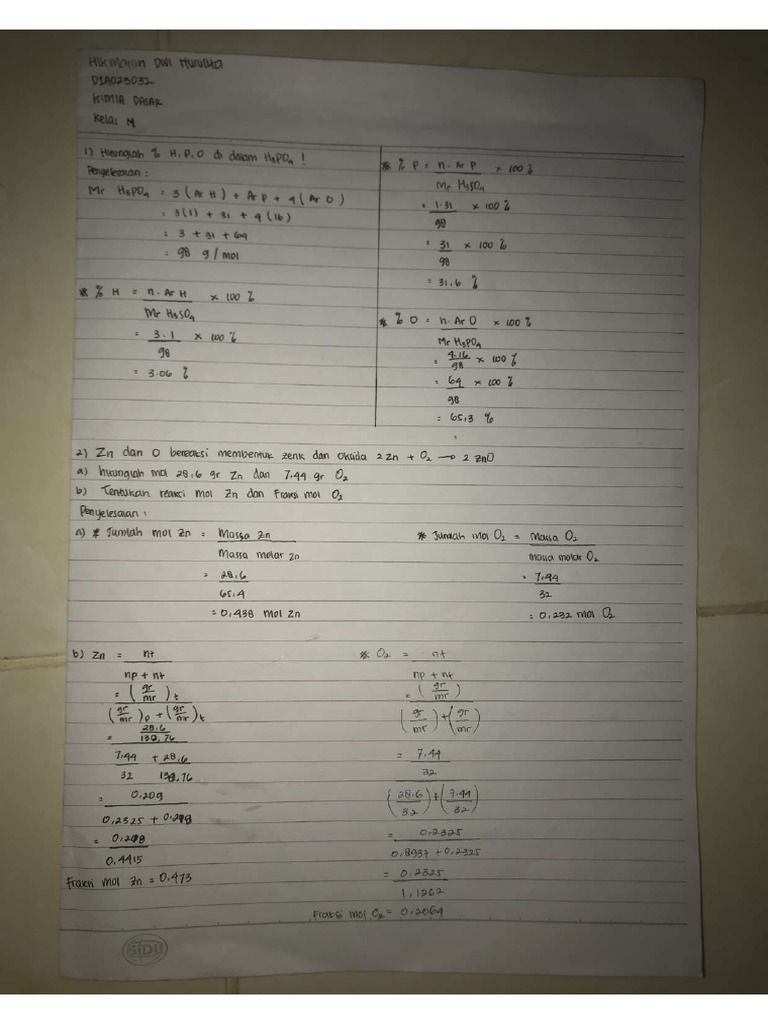 Hikmatun Dwi Hurubta
D1A023032
KIMIA DASAR
Kelas M
1) Hitunglah % H, P, O di dalam H₃PO₄ !
Penyelesaian :
Mr H₃PO₄ = 3 (Ar H) + Ar P + 4 (Ar O)
= 3(1) + 31 + 4 (16)
= 3 + 31 + 64
= 98 g/mol
* % H = n. Ar H × 100 %
Mr H₃SO₄
= 3.1 × 100 %
98
= 3.06 %
* % P = n. Ar P × 100 %
Mr H₃SO₄
= 1.31 × 100 %
98
= 31 × 100 %
98
= 31,6 %
* % O = n. Ar O × 100 %
Mr H₃PO₄
= 4.16 × 100 %
98
= 64 × 100 %
98
= 65,3 %
2) Zn dan O bereaksi membentuk zenk dan Oksida 2 Zn + O₂ → 2 ZnO
a) hitunglah mol 28,6 gr Zn dan 7,44 gr O₂
b) Tentukan reaksi mol Zn dan Fraksi mol O₂
Penyelesaian :
a) * Jumlah mol Zn = Massa Zn
Massa Molar Zn
= 28,6
65,4
= 0,438 mol Zn
* Jumlah mol O₂ = Massa O₂
massa molar O₂
= 7,44
32
= 0,232 mol O₂
b) Zn = nt
np + nt
= (gr/mr)t
(gr/mr)p + (gr/mr)t
= 28.6
7.44 + 28,6
32
= 0,209
0,2325 +
=
0.4415
Fraksi mol Zn = 0,473
* O₂ = nt
np + nt
= (gr/mr)
(gr/mr) + (gr/mr)
= 7.44
32
(28.6/32) + (7.44/32)
= 0,2325
0,8937 + 0,2325
= 0,2325
1,1262
Fraksi mol O₂ = 0,2064
SIDU